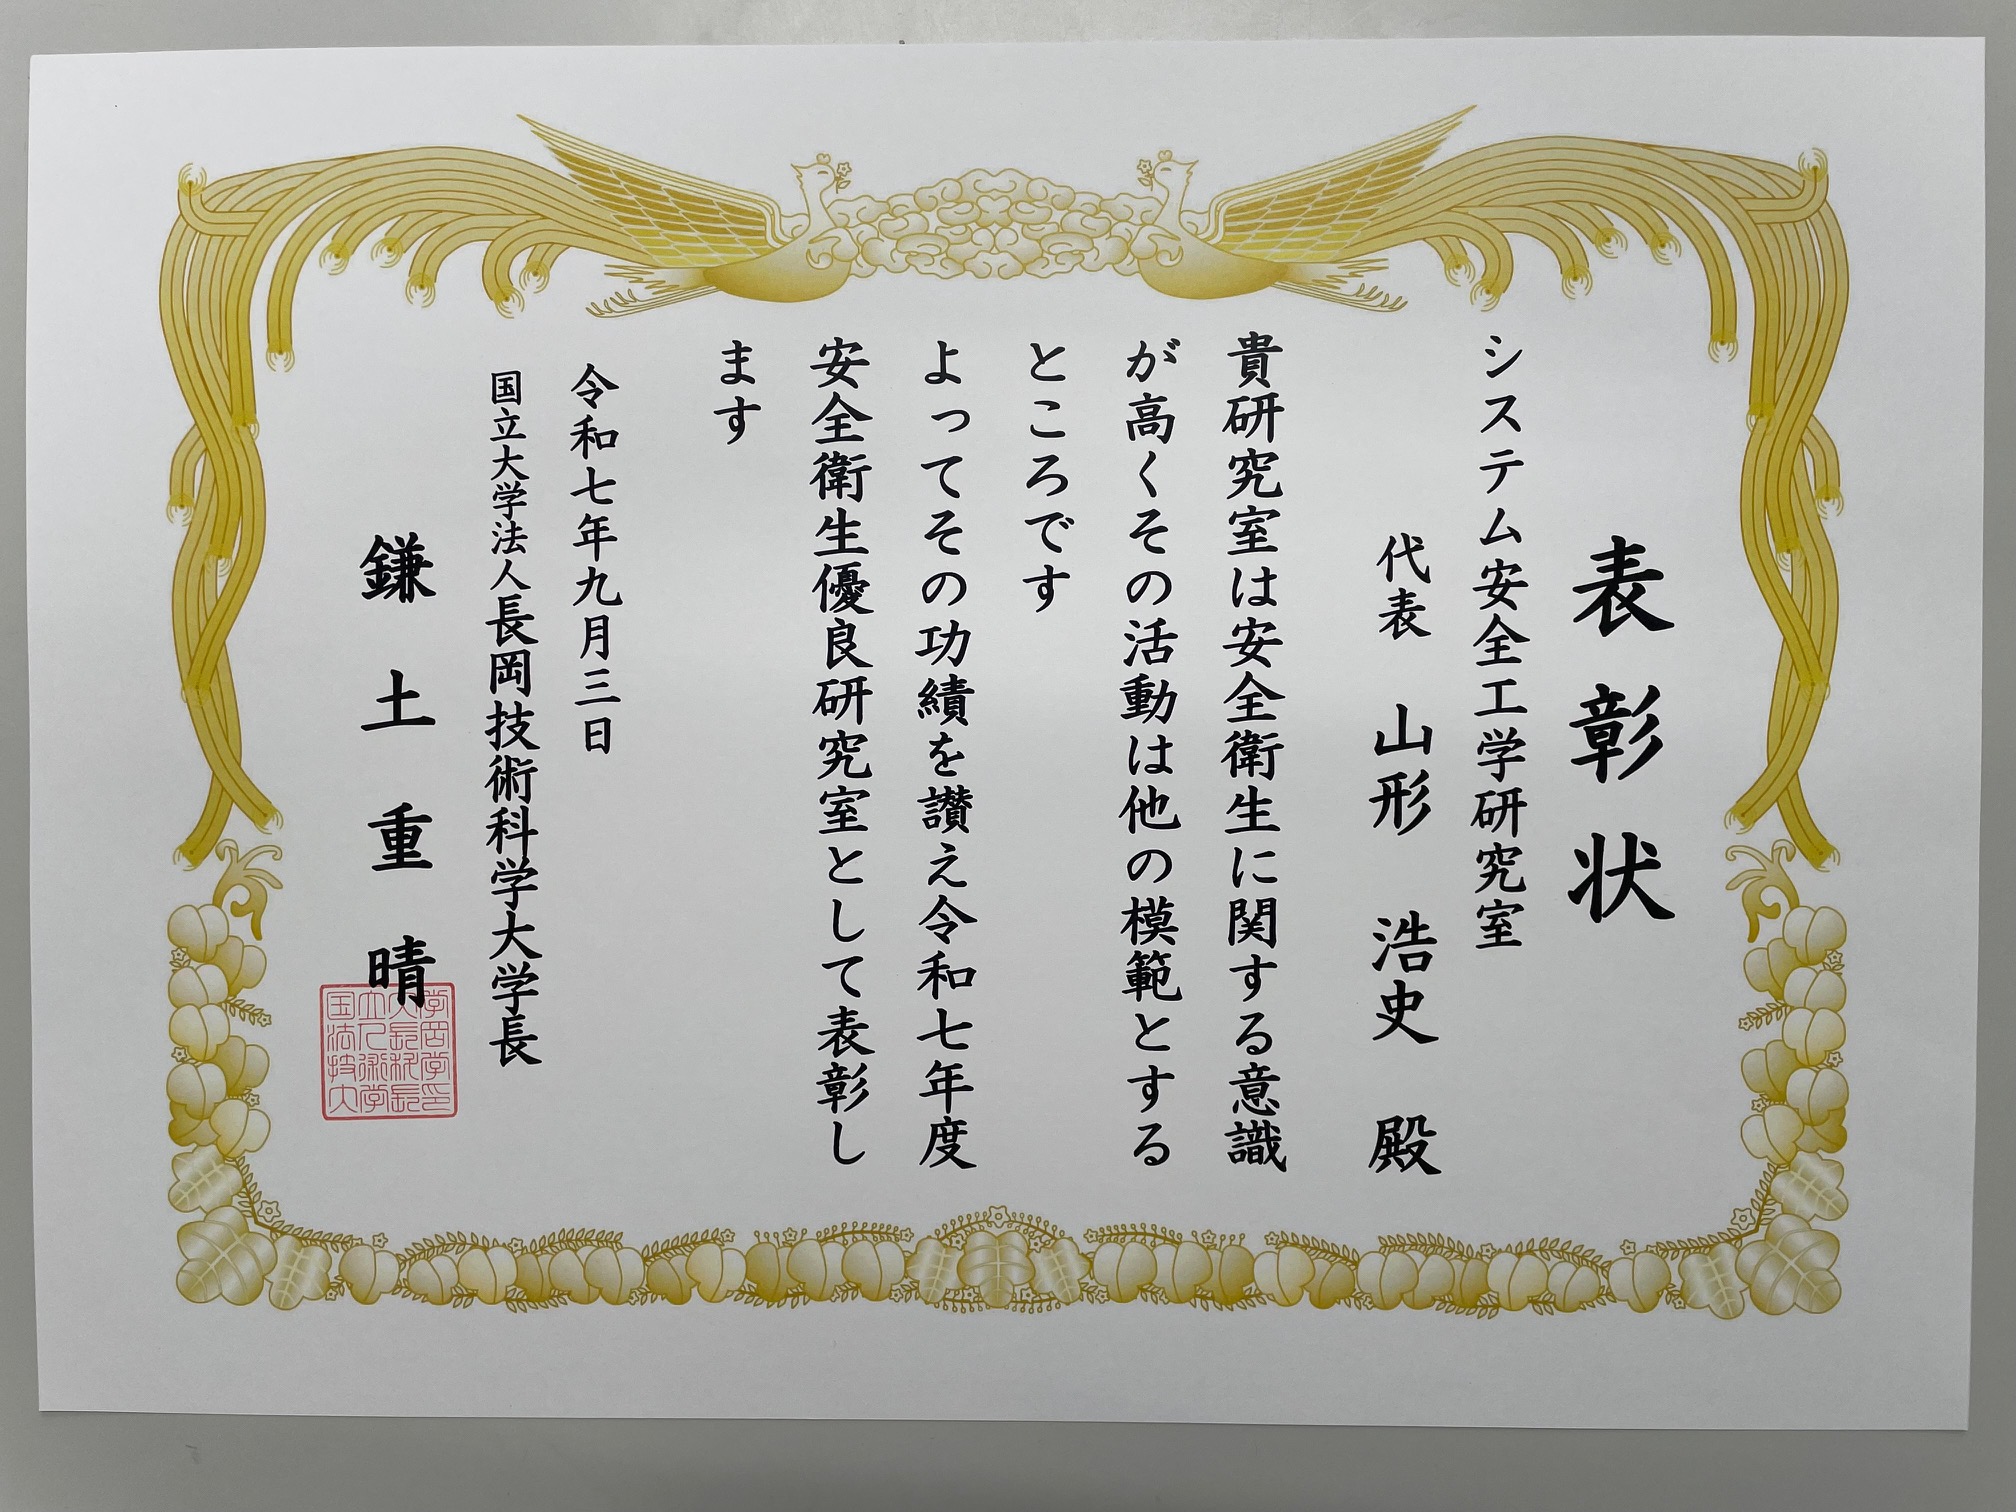 表彰状
システム安全工学研究室
代表 山形 浩史 殿
貴研究室は安全衛生に関する意識
が高くその活動は他の模範とする
ところです
よってその功績を讃え令和七年度
安全衛生優良研究室として表彰し
ます
令和七年九月三日
国立大学法人長岡技術科学大学長
鎌土重晴